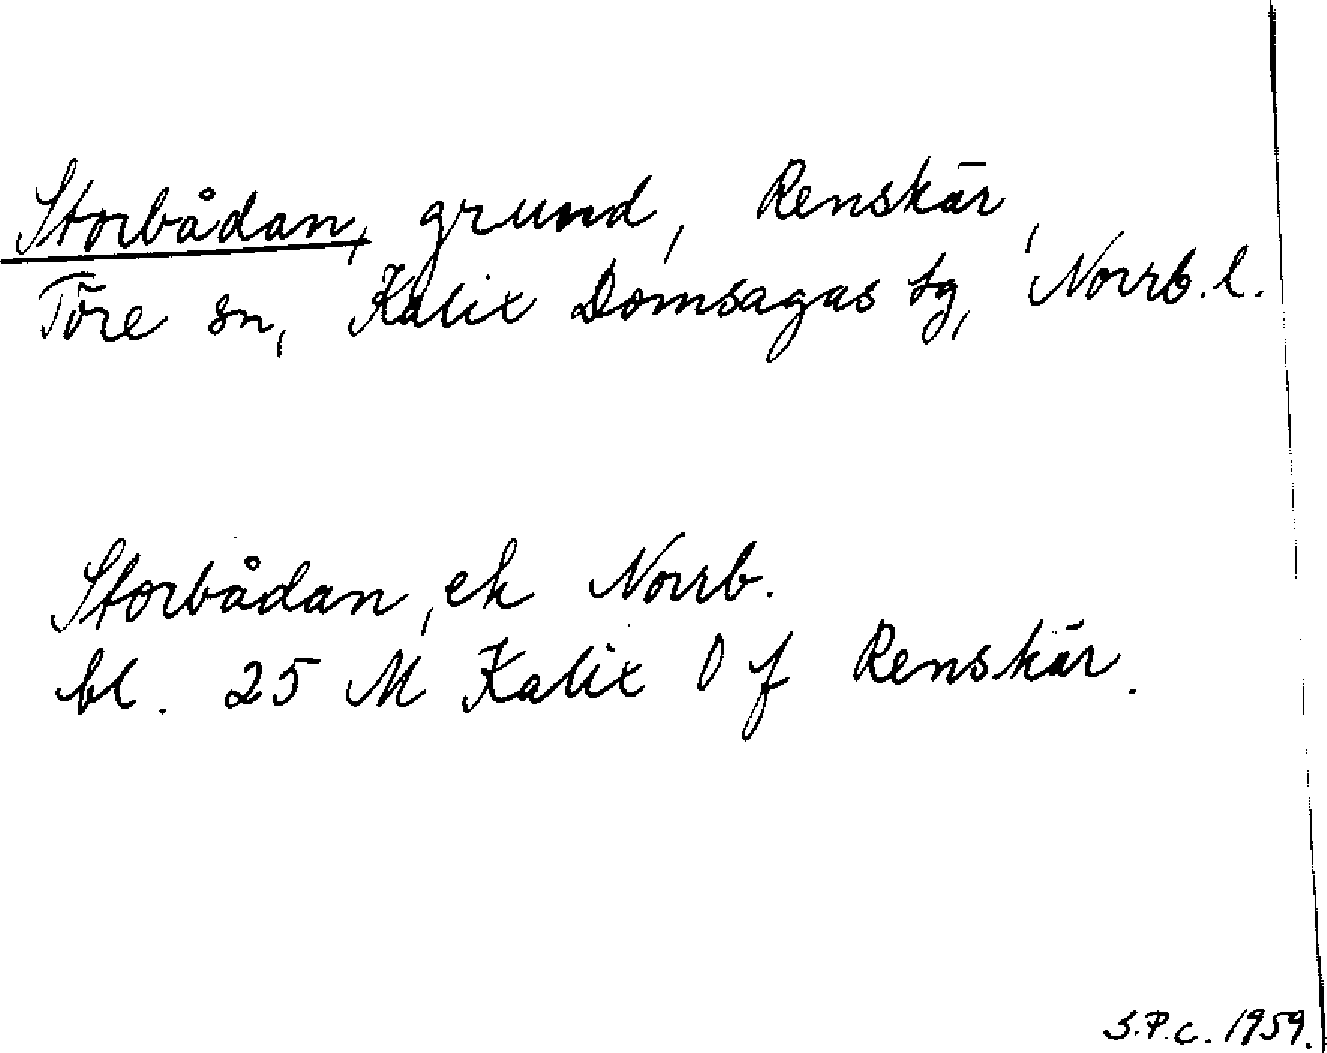 Storbådan, grund, Renskär,
Töre sn, Kalix Domsagas tg, Norrb. l.
Storbådan, ek Norrb.
bl. 25 M Kalix O f Renskär.
S.P.C. 1959.